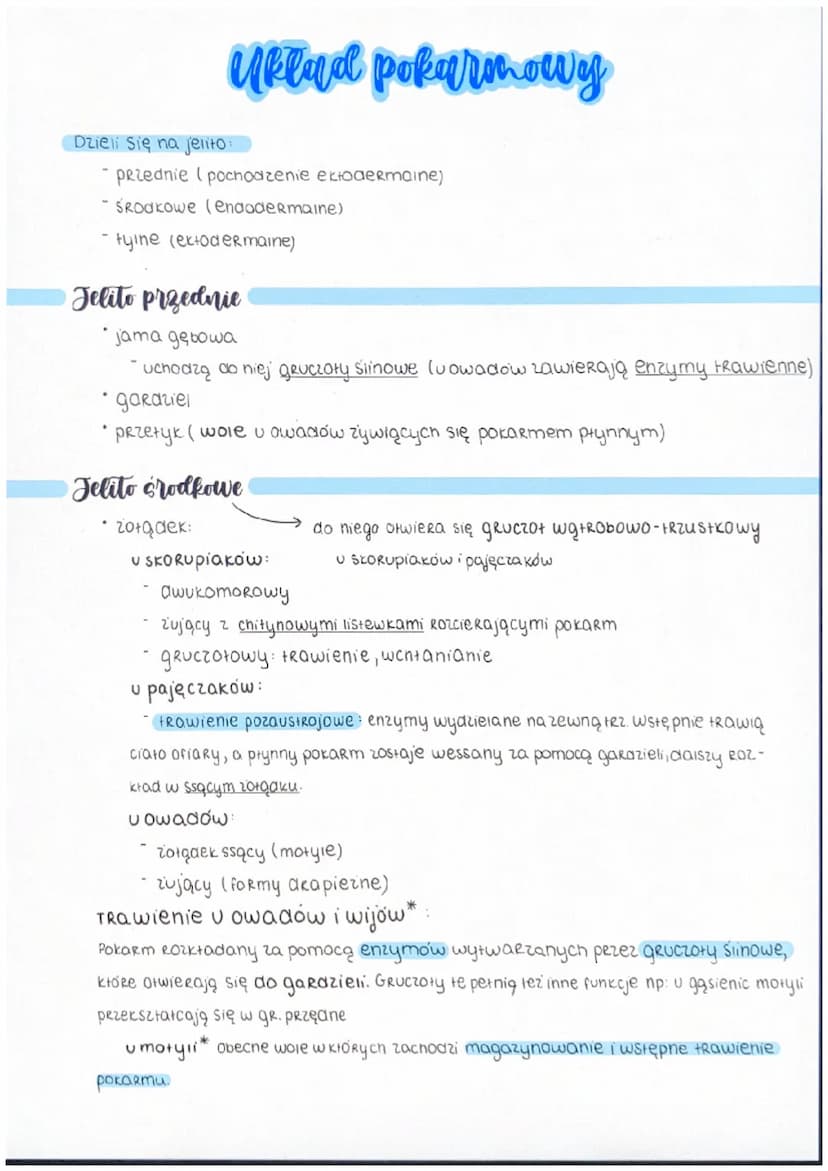 Układ pokarmowy
Dzieli się na jelito:
- przednie (pochodzenie ektodermalne)
- środkowe (endodermalne)
- tylne (ektodermalne)
Jelito przednie
• jama gębowa
- uchodzą do niej gruczoły ślinowe (u owadów zawierają enzymy trawienne)
• gardziel
• przełyk (wole u owadów żywiących się pokarmem płynnym)
Jelito środkowe
• żołądek: → do niego otwiera się gruczoł wątrobowo-trzustkowy
u skorupiaków: u skorupiaków i pajęczaków
- dwukomorowy
- żujący z chitynowymi listewkami rozcierającymi pokarm
- gruczołowy: trawienie, wchłanianie
u pajęczaków:
- trawienie pozaustrojowe: enzymy wydzielane na zewnątrz. Wstępnie trawią
ciało ofiary, a płynny pokarm zostaje wessany za pomocą gardzieli, dalszy roz-
kład w ssącym żołądku.
u owadów:
- żołądek ssący (motyle)
- żujący (formy drapieżne)
Trawienie u owadów i wijów*:
Pokarm rozkładany za pomocą enzymów wytwarzanych przez gruczoły ślinowe,
które otwierają się do gardzieli. Gruczoły te pełnią też inne funkcje np: u gąsienic motyli
przekształcają się w gr. przędne
u motyli* obecne wole w których zachodzi magazynowanie i wstępne trawienie
pokarmu.